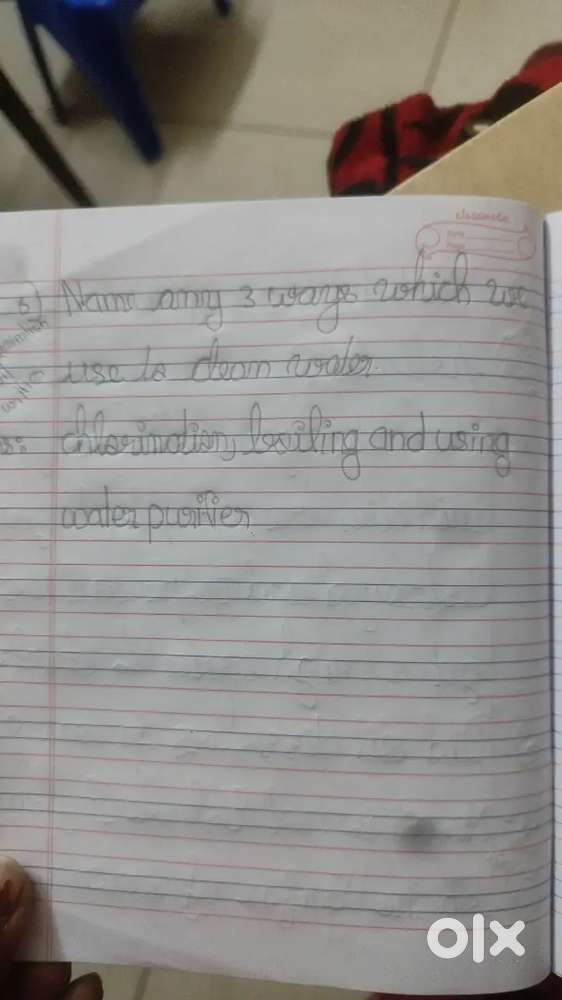 classmate
Date
Page
6) Name any 3 ways which we
use to clean water.
ns: chlorination, boiling and using
water purifier
olx